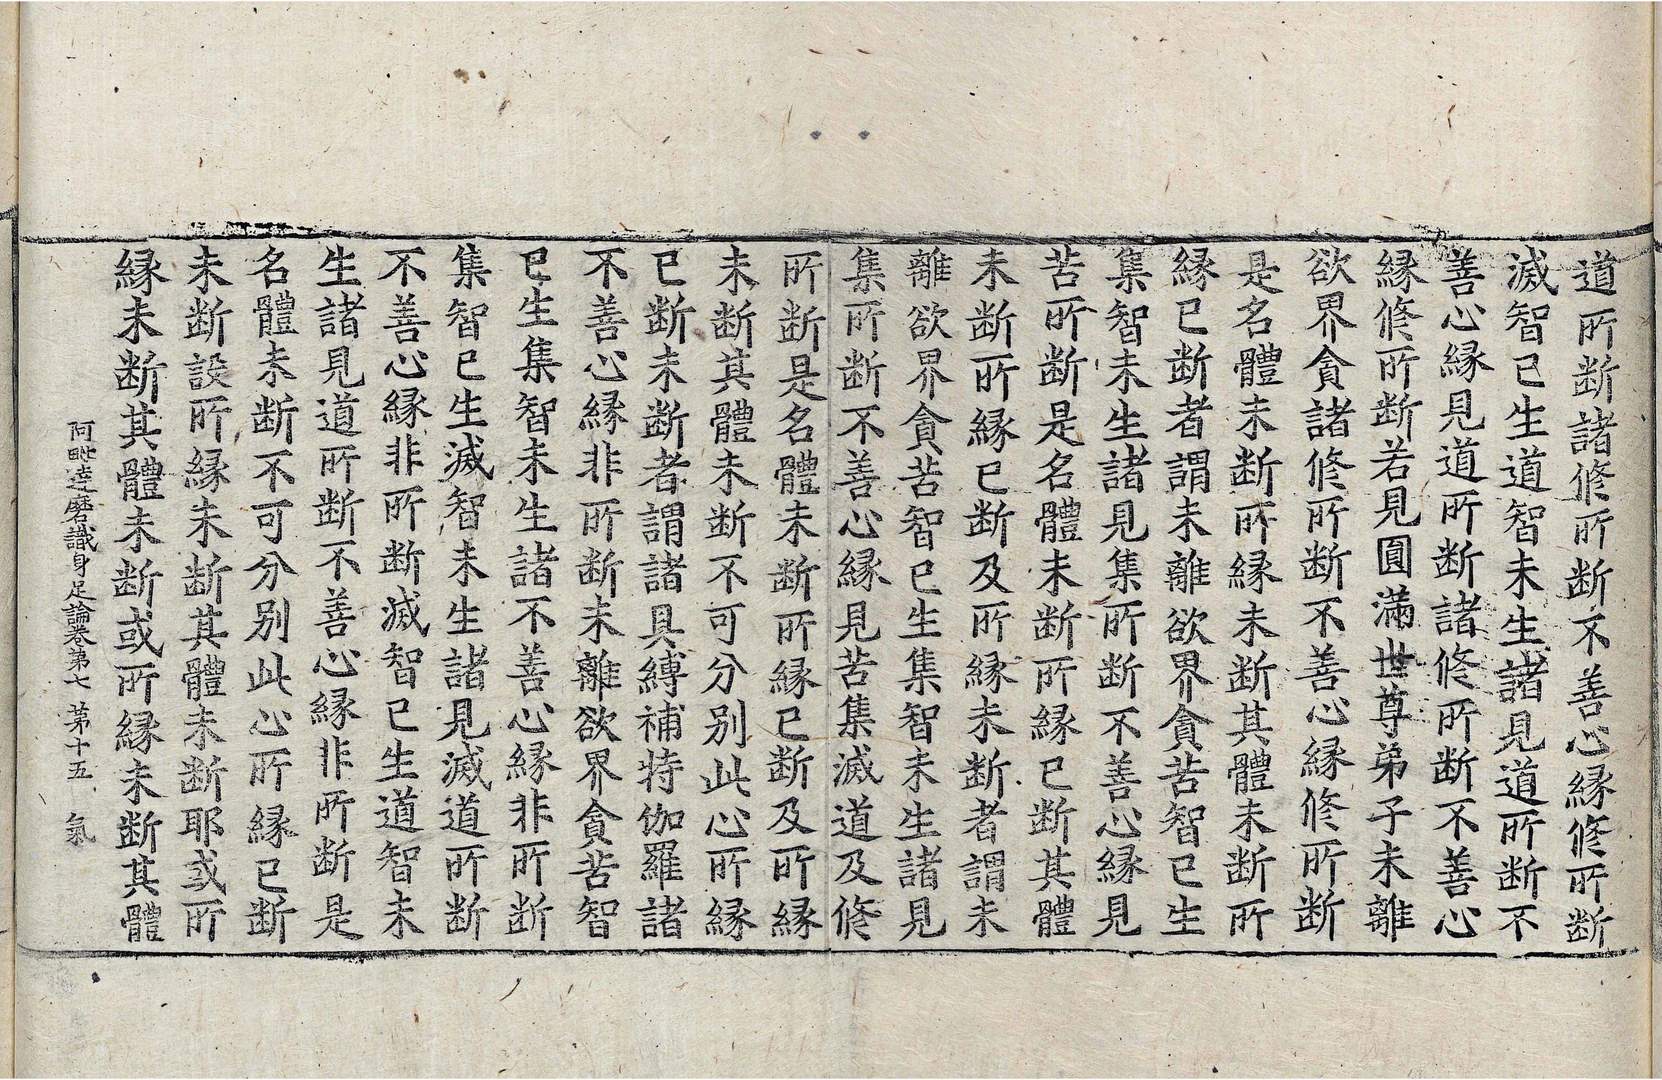 道所断諸修所断不善心縁修所断
滅智已生道智未生諸見道所断不
善心縁見道所断諸修所断不善心
縁修所断若見圓滿世尊弟子未離
欲界貪諸修所断不善心縁修所断
是名體未断所縁未断其體未断所
縁已断者謂未離欲界貪苦智已生
集智未生諸見集所断不善心縁見
苦所断是名體未断所縁已断其體
未断所縁已断及所縁未断者謂未
離欲界貪苦智已生集智未生諸見
集所断不善心縁見苦集滅道及修
所断是名體未断所縁已断及所縁
未断其體未断不可分別此心所縁
已断未断者謂諸具縛補特伽羅諸
不善心縁非所断未離欲界貪苦智
已生集智未生諸不善心縁非所断
集智已生滅智未生諸見滅道所断
不善心縁非所断滅智已生道智未
生諸見道所断不善心縁非所断是
名體未断不可分別此心所縁已断
未断設所縁未断其體未断耶或所
縁未断其體未断或所縁未断其體
阿毗達磨識身足論卷第七 第十五 氣